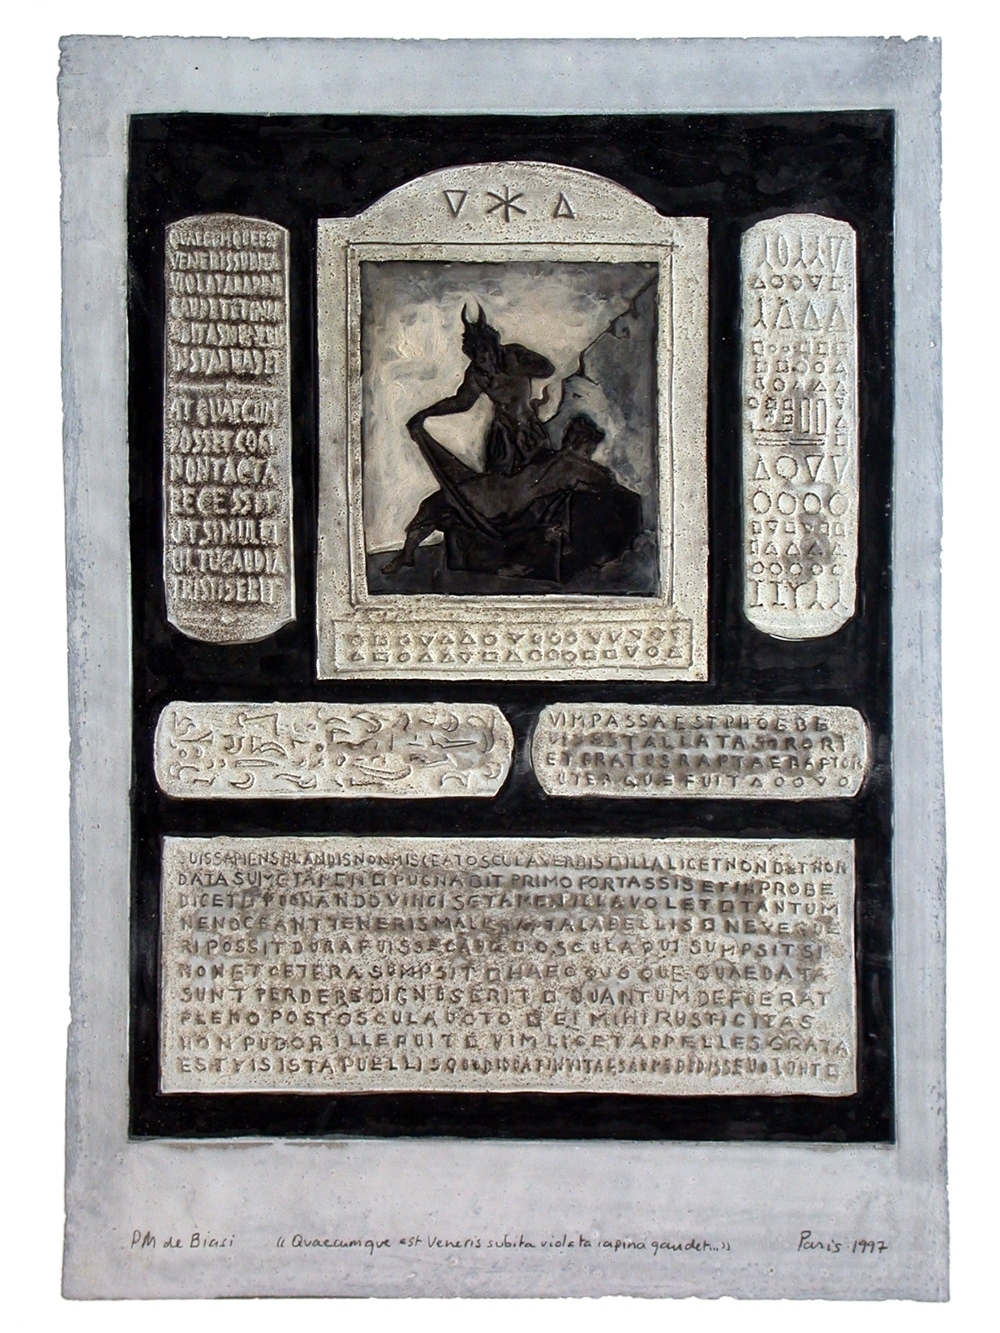 QUAECUMQUEEST
VENERISSUBITA
VIOLATARAPINA
GAUDETETINPRO
ATQUAECUM
POSSETCOGI
NONTACTA
RECESSIT
UTSIMULET
VULTUGAUDIA
TRISTISERIT
VIMPASSAESTPHOEBE
VISESTALLATASORORI
ETGRATUSRAPTAERAPTOR
UTERQUEFUIT
UISSAPIENSBLANDISNONMISCEATOSCULAVERBISILLALICETNONDETNON
DATASUMETAMEN PUGNABITPRIMOFORTASSISETINPROBE
DICET PUGNANDOVINCISETAMENILLAVOLET TANTUM
NENOCEANTTENERISMALERAPTALABELLIS NEVEQUE
RIPOSSITDURAFUISSECAVE OSCULAQUISUMPSITSI
NONETCETERASUMPSIT HAECQUOQUEQUAEDATA
SUNTPERDEREDIGNUSERIT QUANTUMDEFUERAT
PLENOPOSTOSCULAVOTO EIMIHIRUSTICITAS
NONPUDORILLEFUIT VIMLICETAPPELLESGRATA
ESTVISISTAPUELLIS
PM de Biasi « Quaecumque est Veneris subita violata rapina gaudet...» Paris 1997